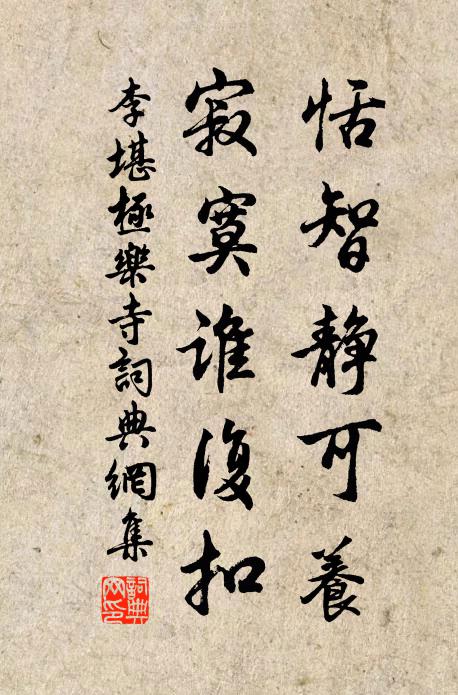 恬智靜可養
寂寞誰復扣
李堪極樂寺詞典網集
詞典网印